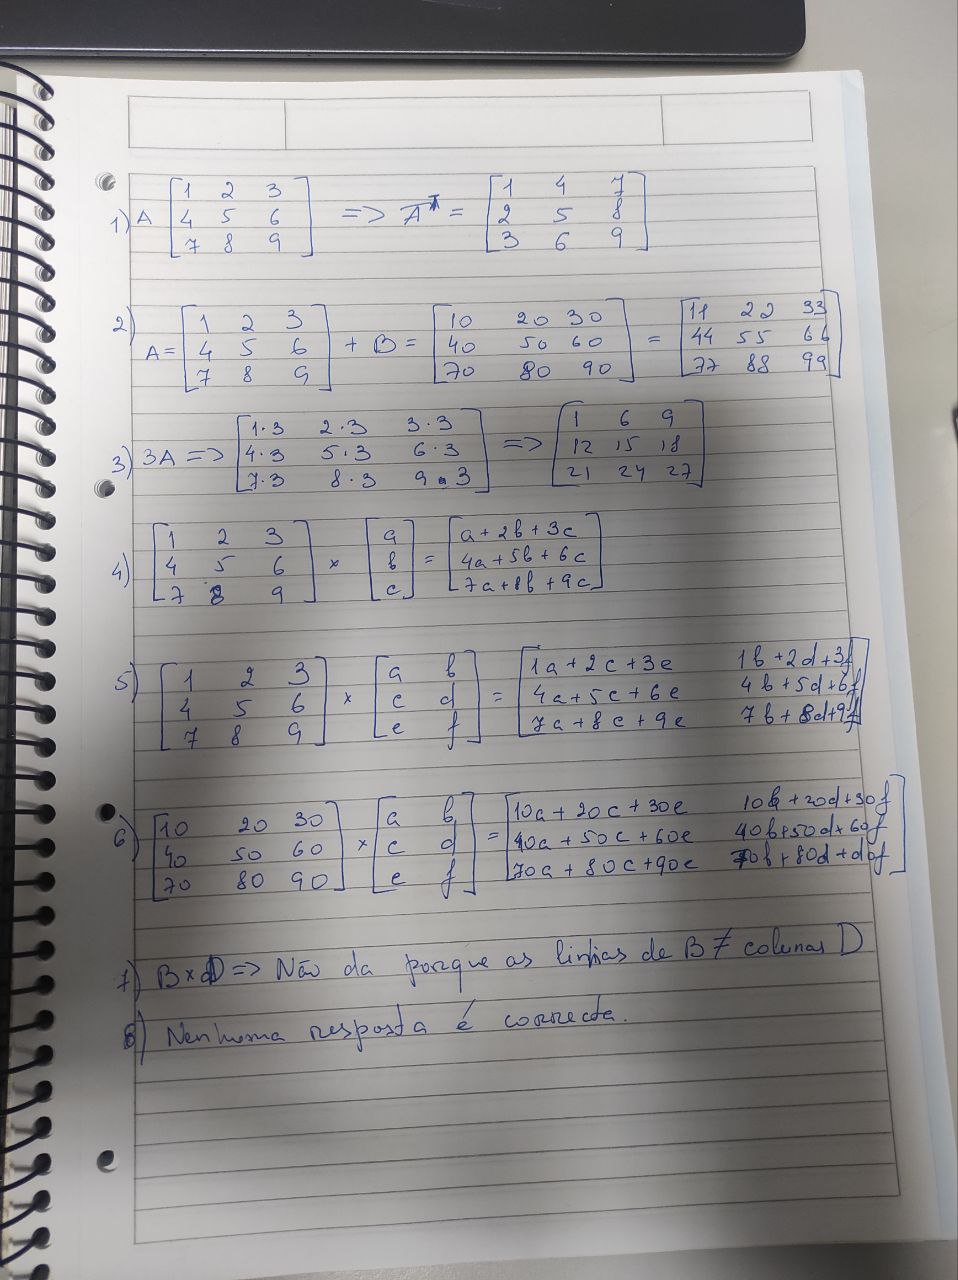 1) A [1 2 3
4 5 6
7 8 9] => A^T = [1 4 7
2 5 8
3 6 9]
2) A = [1 2 3
4 5 6
7 8 9] + B = [10 20 30
40 50 60
70 80 90] = [11 22 33
44 55 66
77 88 99]
3) 3A => [1·3 2·3 3·3
4·3 5·3 6·3
7·3 8·3 9·3] => [1 6 9
12 15 18
21 24 27]
4) [1 2 3
4 5 6
7 8 9] × [a
b
c] = [a+2b+3c
4a+5b+6c
7a+8b+9c]
5) [1 2 3
4 5 6
7 8 9] × [a b
c d
e f] = [1a+2c+3e 1b+2d+3f
4a+5c+6e 4b+5d+6f
7a+8c+9e 7b+8d+9f]
6) [10 20 30
40 50 60
70 80 90] × [a b
c d
e f] = [10a+20c+30e 10b+20d+30f
40a+50c+60e 40b+50d+60f
70a+80c+90e 70b+80d+d0f]
7) B×D => Não da porque as linhas de B ≠ colunas D
8) Nenhuma resposta é correcta.